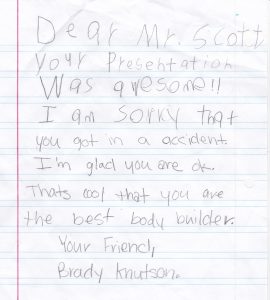 Dear Mr. Scott
Your Presentation
Was awesome!!
I am sorry that
you got in a accident.
I'm glad you are ok.
Thats cool that you are
the best body builder.
Your Friend,
Brady Knutson.